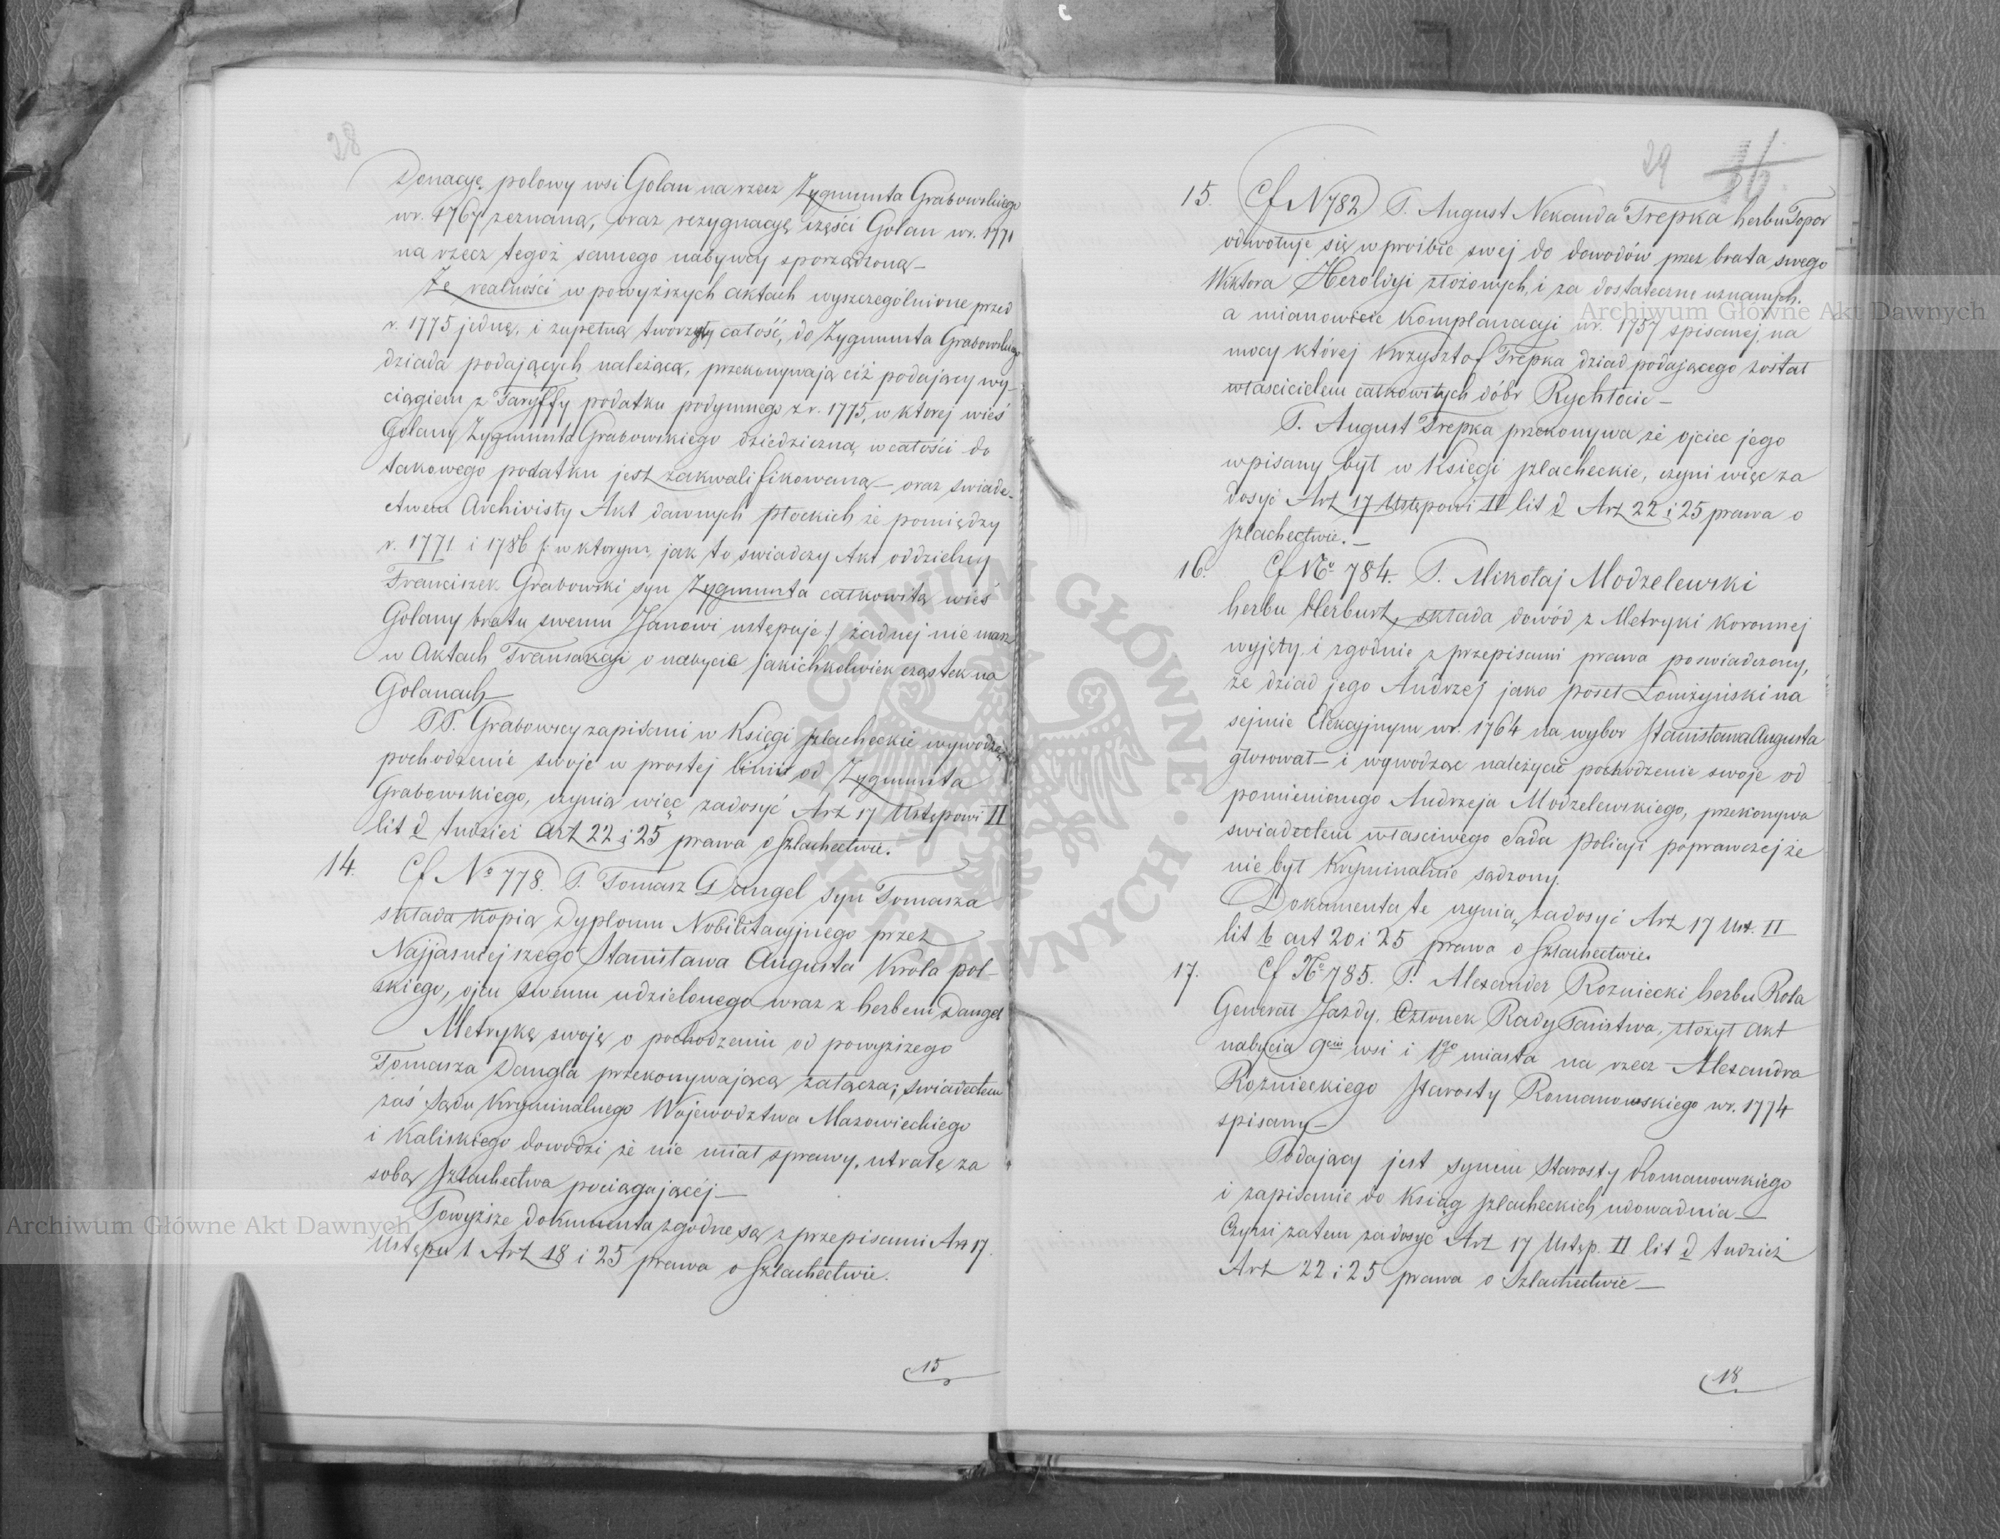 28
Donacyę połowy wsi Golan na rzecz Zygmunta Grabowskiego
w r. 1767 zeznaną, oraz rezygnacyę części Golan w r. 1771
na rzecz tegoż samego nabywcy sporządzoną —
Że realności w powyższych aktach wyszczególnione przed
r. 1775 jedną, i zupełną tworzyły całość, do Zygmunta Grabowskiego
dziada podających należącą, przekonywają ciż podający wy-
ciągiem z Taryffy podatku podymnego z r. 1775, w ktorej wieś
Golany Zygmunta Grabowskiego dziedziczną w całości do
takowego podatku jest zakwalifikowaną — oraz swiade-
ctwem Archivisty Akt dawnych płockich że pomiędzy
r. 1771 i 1786 /: w ktorym, jak to swiadczy Akt oddzielny
Franciszek Grabowski syn Zygmunta całkowitą wieś
Golany bratu swemu Janowi ustępuje :/ żadnej nie masz
w Aktach Transakcyi o nabycie jakichkolwiek cząstek na
Golanach —
PP. Grabowscy zapisani w Księgi szlacheckie wywodzą
pochodzenie swoje w prostej linii od Zygmunta
Grabowskiego, czynią więc zadosyć Art 17 Ustępowi II
lit d tudzież Art 22 i 25 prawa o Szlachectwie.
14. Cf No 778. P. Tomasz Dangel syn Tomasza
składa kopią Dyplomu Nobilitacyjnego przez
Najjasniejszego Stanisława Augusta Krola pol-
skiego, ojcu swemu udzielonego wraz z herbem Dangel
Metrykę swoję o pochodzeniu od powyższego
Tomasza Dangla przekonywającą załącza; swiadectem
zaś Sądu Kryminalnego Województwa Mazowieckiego
i Kaliskiego dowodzi że nie miał sprawy, utratę za
sobą Szlachectwa pociągającéj —
Powyższe dokumenta zgodne są z przepisami Art 17.
Ustępu 1 Art 18 i 25 prawa o Szlachectwie.
15
29 36.
15. Cf N 782) P. August Nekanda Trepka herbu Topor
odwołuje się w proźbie swej do dowodów przez brata swego
Wiktora Heroldyi złożonych, i za dostateczne uznanych.
a mianowicie Komplanacyi w r. 1757 spisanej, na
mocy której Krzysztof Trepka dziad podającego został
właścicielem całkowitych dóbr Rychłocic —
P. August Trepka przekonywa że ojciec jego
wpisany był w Księgi szlacheckie, czyni więc za
dosyć Art 17 Ustępowi II lit d Art 22 i 25 prawa o
szlachectwie. —
16. Cf No 784. P. Mikołaj Modzelewski
herbu Herburt, składa dowód z Metryki koronnej
wyjęty i zgodnie z przepisami prawa poswiadczony,
że dziad jego Andrzej jako poseł Łomżyński na
sejmie Elekcyjnym w r. 1764 na wybor Stanisława Augusta
głosował — i wywodząc należycie pochodzenie swoje od
pomienionego Andrzeja Modzelewskiego, przekonywa
swiadectem właściwego Sądu Policyi poprawczej że
nie był kryminalnie sądzony.
Dokumenta te czynią zadosyć Art 17 Ust. II
lit b art 20 i 25 prawa o Szlachectwie.
17. Cf No 785. P. Alexander Rozniecki herbu Rola
Generał Jazdy. Członek Rady Państwa, złożył akt
nabycia 9ciu wsi i 1go miasta na rzecz Alexandra
Rożnieckiego Starosty Romanowskiego w r. 1774
spisany —
Podający jest synem Starosty Romanowskiego
i zapisanie do Ksiąg szlacheckich udowadnia —
Czyni zatem zadosyć Art 17 Ustęp. II lit d tudzież
Art 22 i 25 prawa o Szlachectwie —
18
Archiwum Główne Akt Dawnych
Archiwum Główne Akt Dawnych
ARCHIWUM GŁÓWNE · AKT DAWNYCH ·